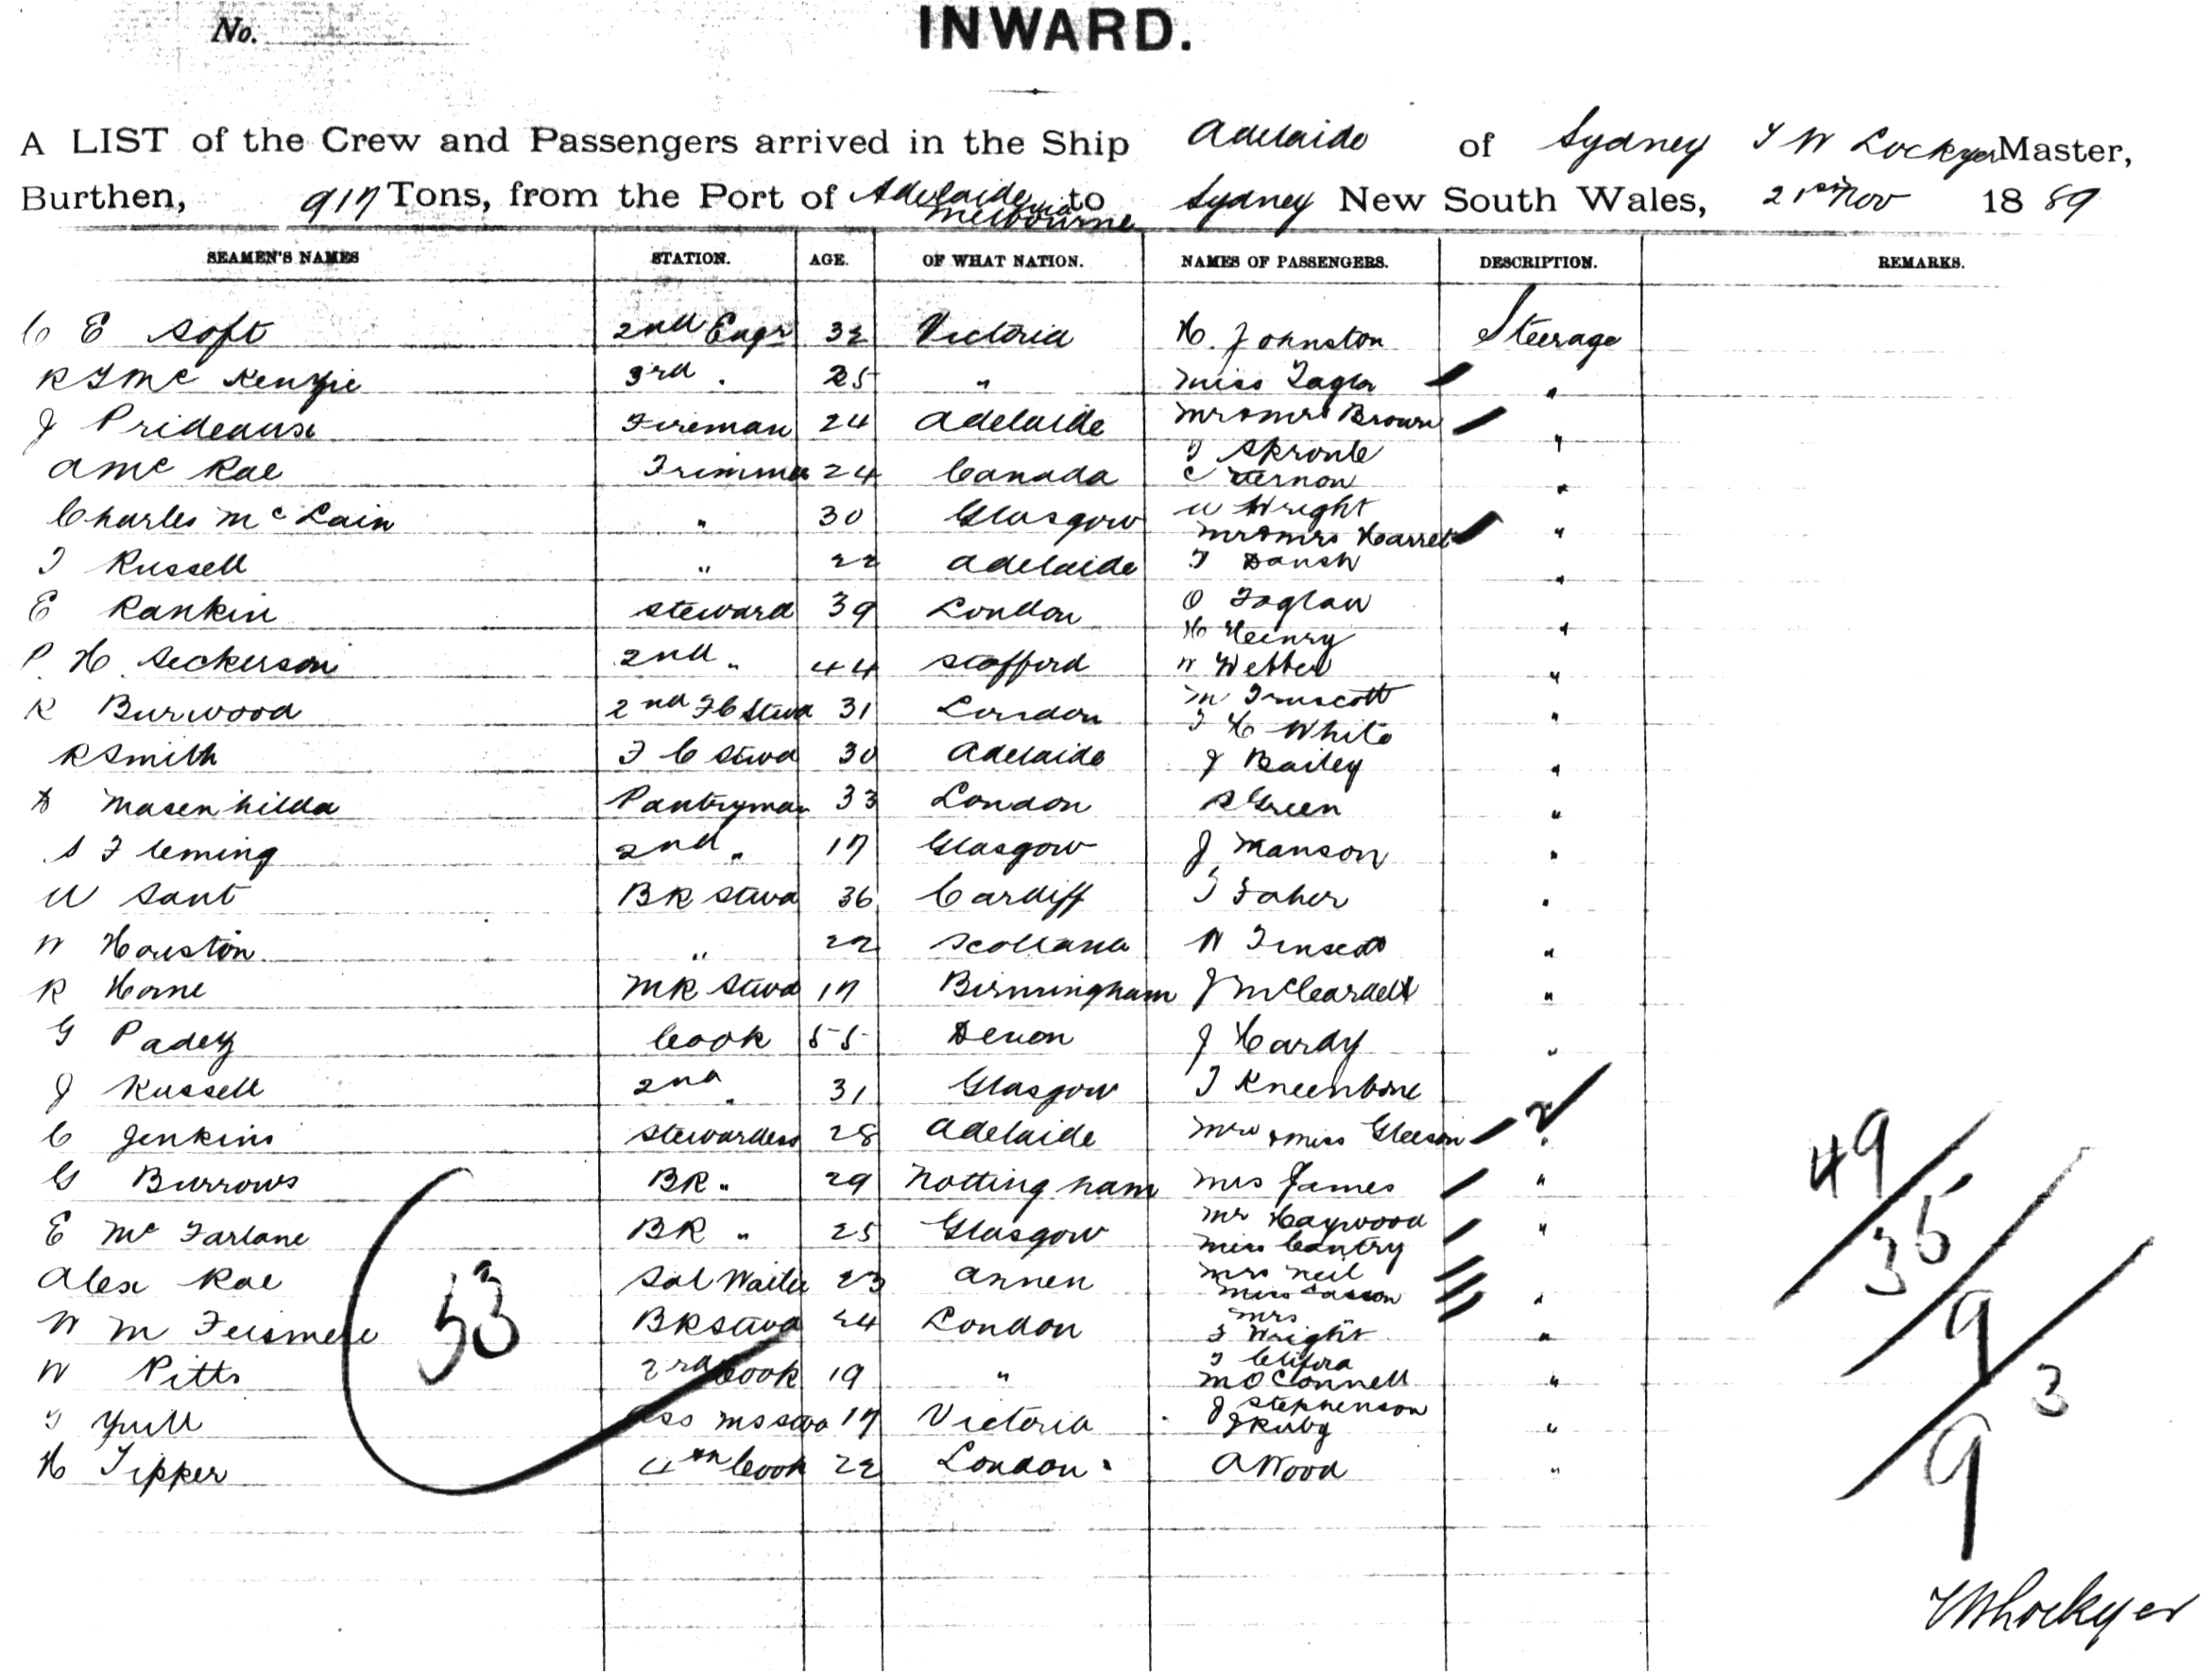 No.
INWARD.
A LIST of the Crew and Passengers arrived in the Ship Adelaide of Sydney T W Lockyer Master,
Burthen, 917 Tons, from the Port of Adelaide via Melbourne to Sydney New South Wales, 21st Nov 1889
SEAMEN'S NAMES STATION. AGE. OF WHAT NATION. NAMES OF PASSENGERS. DESCRIPTION. REMARKS.
C E Soft 2nd Engr 32 Victoria H. Johnston Steerage
McKenzie 3rd " 25 " Miss Taylor "
J Prideaux Fireman 24 Adelaide Mr & Mrs Brown "
T Sproule
A McRae Trimmer 24 Canada C Vernon "
W Wright
Charles McLain " 30 Glasgow Mr & Mrs Harret "
T Russell " 22 Adelaide T "
E Rankin Steward 39 London O "
H Henry
P H Seckerson 2nd " 44 Stafford W Webber "
M Truscott
R Burwood 2nd FC Stwd 31 London "
T H White
R Smith F C Stwd 30 Adelaide J Bailey "
Masenhilda Pantryman 33 London S Green "
S Fleming 2nd " 17 Glasgow J Manson "
W Sant BR Stwd 36 Cardiff T Faher "
W Houston " 22 Scotland W "
R Horne MR Stwd 17 Birmingham J "
G Padey Cook 55 Devon J Hardy "
J Russell 2nd " 31 Glasgow T Kneenbone 2
C Jenkins Stewardess 28 Adelaide Mrs & Miss Gleeson "
G Burrows BR " 29 Nottingham Mrs James "
Mr Haywood
E McFarlane BR " 25 Glasgow "
Miss Cantry
Alex Rae Sal Waiter 23 Annen Mrs Neil
Miss Casson "
Mrs
W M BR Stwd 24 London F Wright "
T
W Pitts 2rd Cook 19 " M O'Connell "
J Stephenson
T Yuill Ass MS Stwd 17 Victoria J Ruby "
H Tipper 4th Cook 22 London A Wood "
53
49
35
9
3
9
T W Lockyer